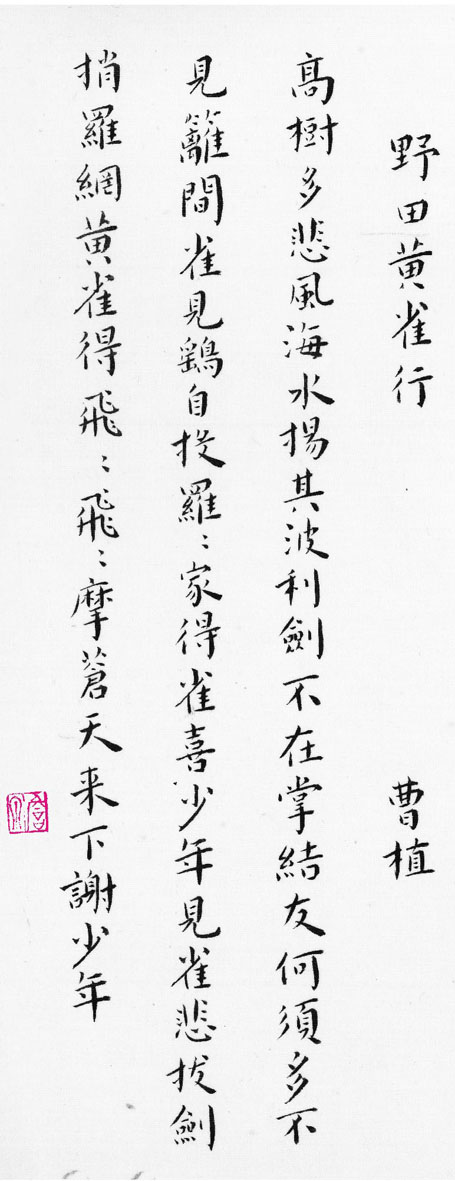 野田黄雀行　曹植
高樹多悲風海水揚其波利劍不在掌結友何須多不
見籬間雀見鷂自投羅：家得雀喜少年見雀悲拔劍
捎羅網黄雀得飛：飛：摩蒼天来下謝少年